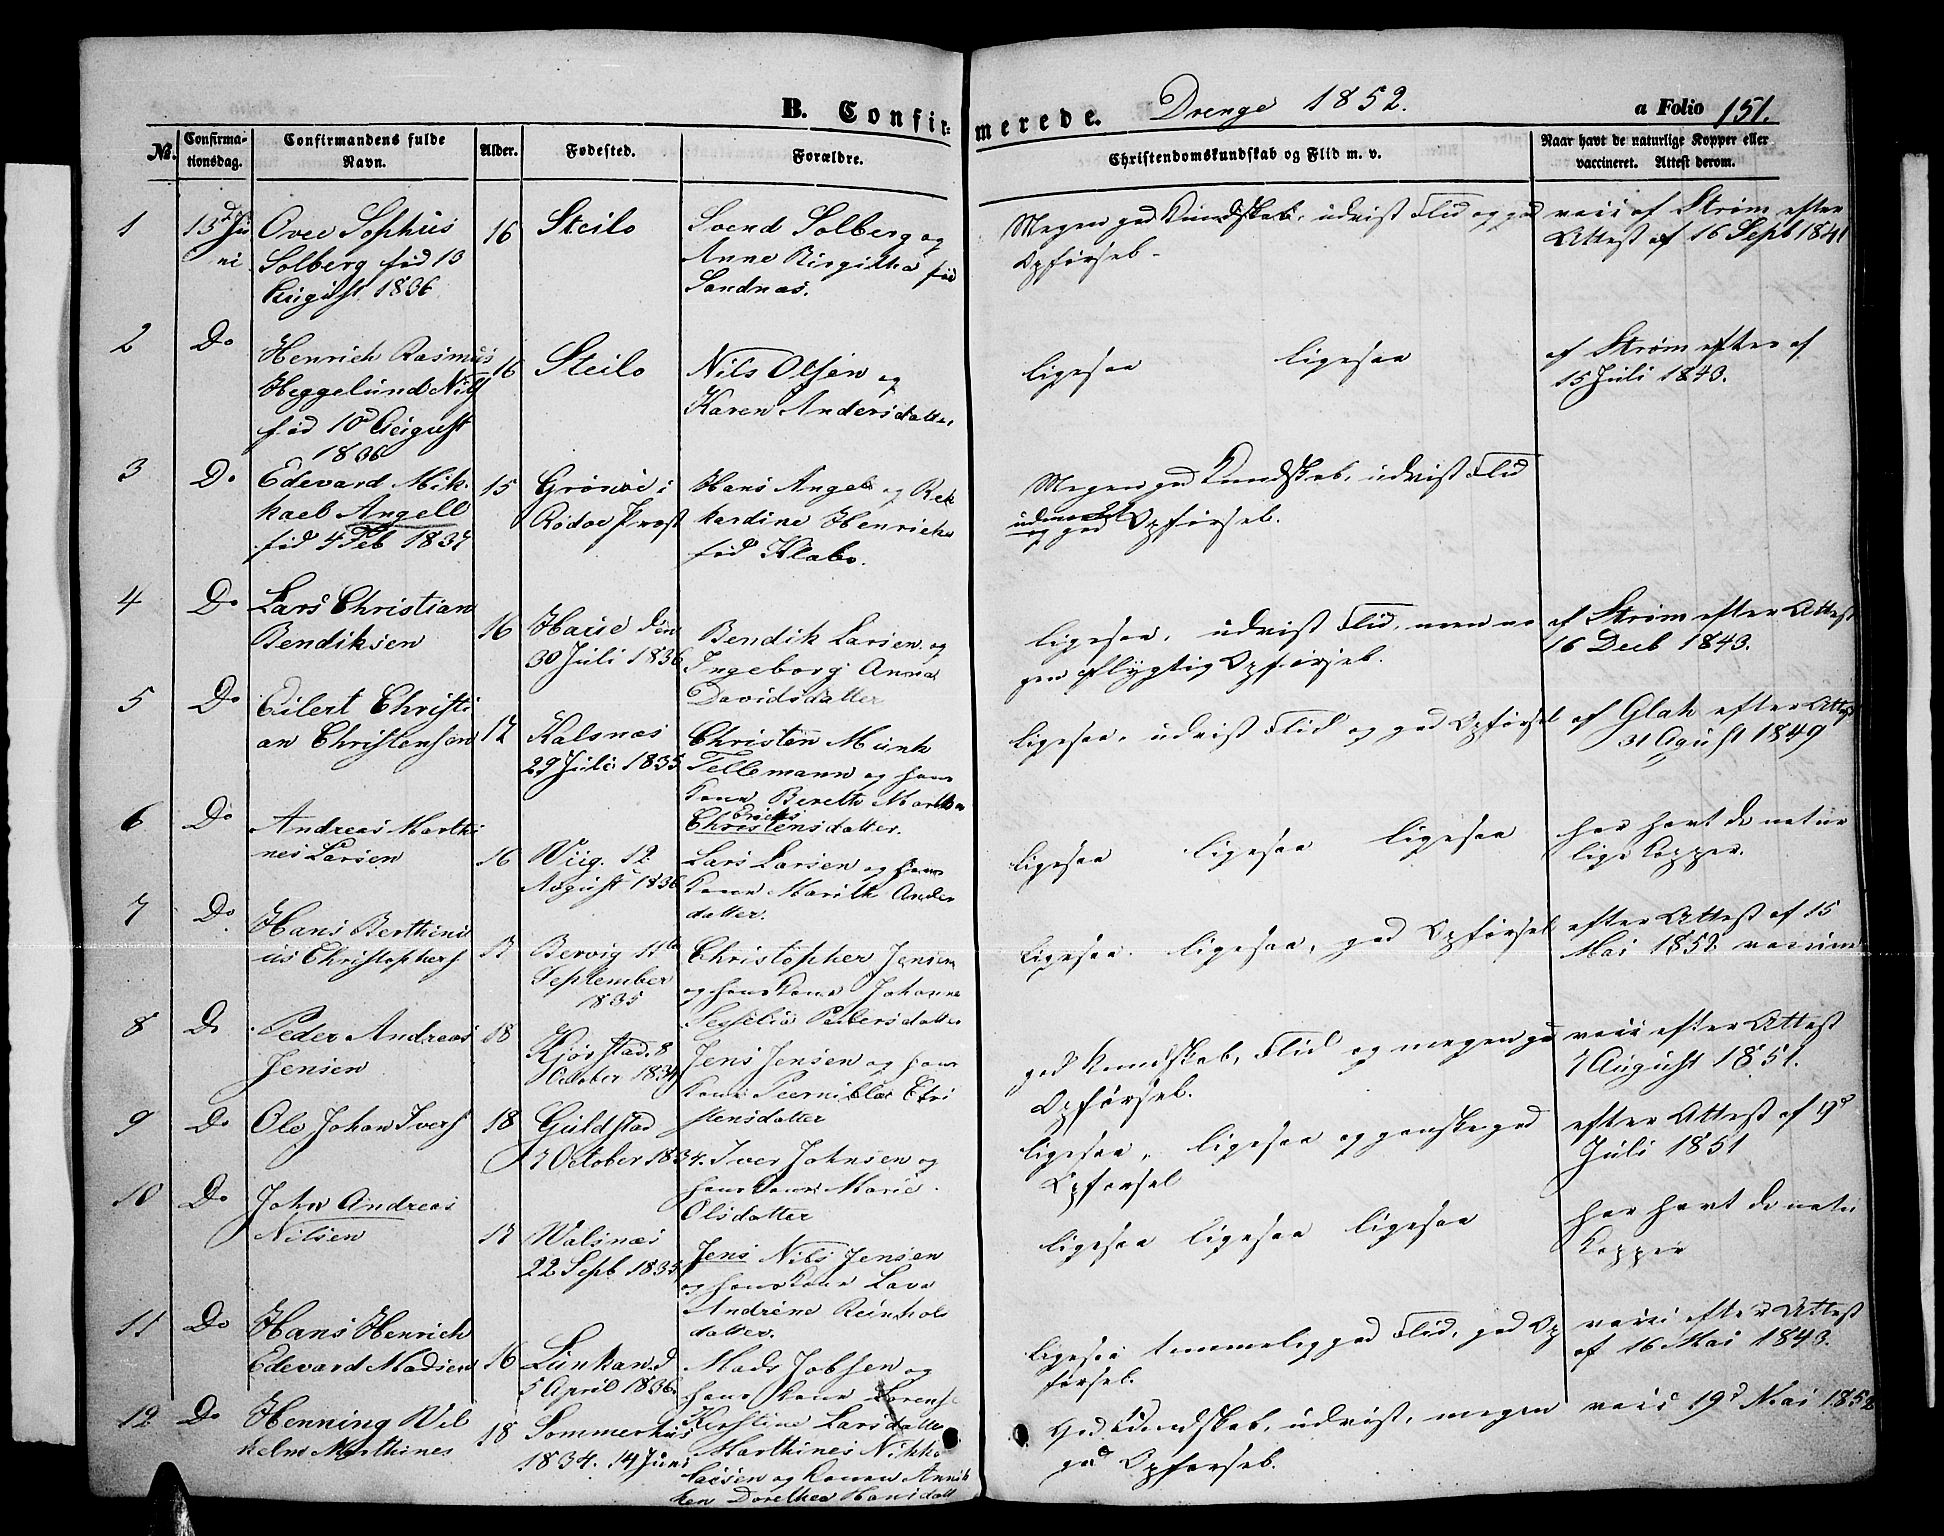 B. Confirmerede. Drenge 1852. a Folio 151.
No. Confirmationsdag. Confirmandens fulde Navn. Alder. Fødested. Forældre. Christendomskundskab og Flid m. v. Naar havt de naturlige Kopper eller vaccineret. Attest derom.
1 13d Ju
ni
Ovee Sophus
Solberg fød 13
August 1836
16 Steilo
Svend Solberg og
Anne Birgitha fød
Sandnæs.
Megen god Kundskab, udvist Flid og god
Opførsel.
vacc af Strøm efter
Attest af 16 Sept 1841
2 Do
Henrich Rasmus
Heggelund Nils
fød 10d August
1836
16 Steilo
Nils Olsen og
Karen Andersdatter
ligesaa ligesaa
af Strøm efter af
15 Juli 1843.
3 Do
Edevard Mik
kael Angell
fød 4 Feb 1837
15 Grønøe i
Rødøe Præst
Hans Angel og Rek
kardine Henricke
fød Klæbo.
Megen god Kundskab, udvist Flid
udmærket
og god Opførsel.
4 Do
Lars Christian
Bendiksen
16 Haue den
30 Juli 1836
Bendik Larsen og
Ingeborg Anna
Davidsdatter
ligesaa, udvist Flid, men no
gen flygtig Opførsel.
af Strøm efter Attest
16 Decb 1843.
5 Do
Eilert Christi
an Christensen
17 Kalsnæs
29 Juli 1835
Christen Munk
Tellemann og hans
Kone Bereth Martha
Ericks
Christensdatter.
ligesaa, udvist Flid og god Opførsel
af Glak efter Attest
31 Agust 1849
6 Do
Andreas Marthi
nes Larsen
16 Viig. 12
August 1836
Lars Larsen og hans
Kone Marith Anders
datter.
ligesaa ligesaa ligesaa
har havt de natur
lige Kopper.
7 Do
Hans Berthini
us Christophers
17 Bervig 11te
September
1835
Christopher Jensen
og hans Kone Johanna
Sessilia Pedersdatter
ligesaa. ligesaa, god Opførsel
efter Attest af 15
Mai 1852 vaccin
8 Do
Peder Andreas
Jensen
18 Kjørstad. 8
October 1834
Jens Jensen og hans
Kone Peernilla Chri
stensdatter
god Kundskab, Flid og megen god
Opførsel.
vacc efter Attest
7 August 1851.
9 Do
Ole Johan Ivers
18 Guldstad
7 October 1834.
Iver Johnsen og
hans Kone Marie
Olsdatter
ligesaa, ligesaa og ganske god
Opførsel
efter Attest af 9d
Juli 1851
10 Do
John Andreas
Nilsen
17 Walsnæs
22 Sept 1835
Jens Nils Jensen
og hans Kone Lava
Andrine Reinhols
datter.
ligesaa ligesaa ligesaa
har havt de natu
Kopper
11 Do
Hans Henrich
Edevard Madsen
16 Lunkan d
5 April 1836.
Mads Jobsen og
hans Kone Lorense
Kerstine Larsdatter
ligesaa temmelig god Flid, god Op
førsel.
vacc efter Attest
af 16 Mai 1843.
12 Do
Henning Vil
helm Marthines
18 Sommerhus
1834. 14 Juni
Marthines Nikko
laisen og Konen Annik
ken Dorethea Hansdatt
God Kundskab, udvist, megen
god Opførsel.
vacc 19d Mai 1852